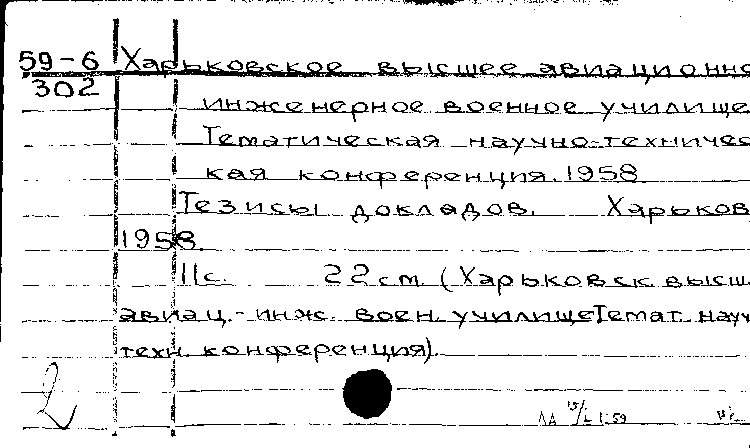 59-6 Харьковское высшее авиационно
302
инженерное военное училище
Тематическая научно-техничес
кая конференция. 1958
Тезисы докладов. Харьков
1958.
11с. 22см. (Харьковск. высш
авиац.-инж. воен. училище Темат. науч
техн. конференция).
2